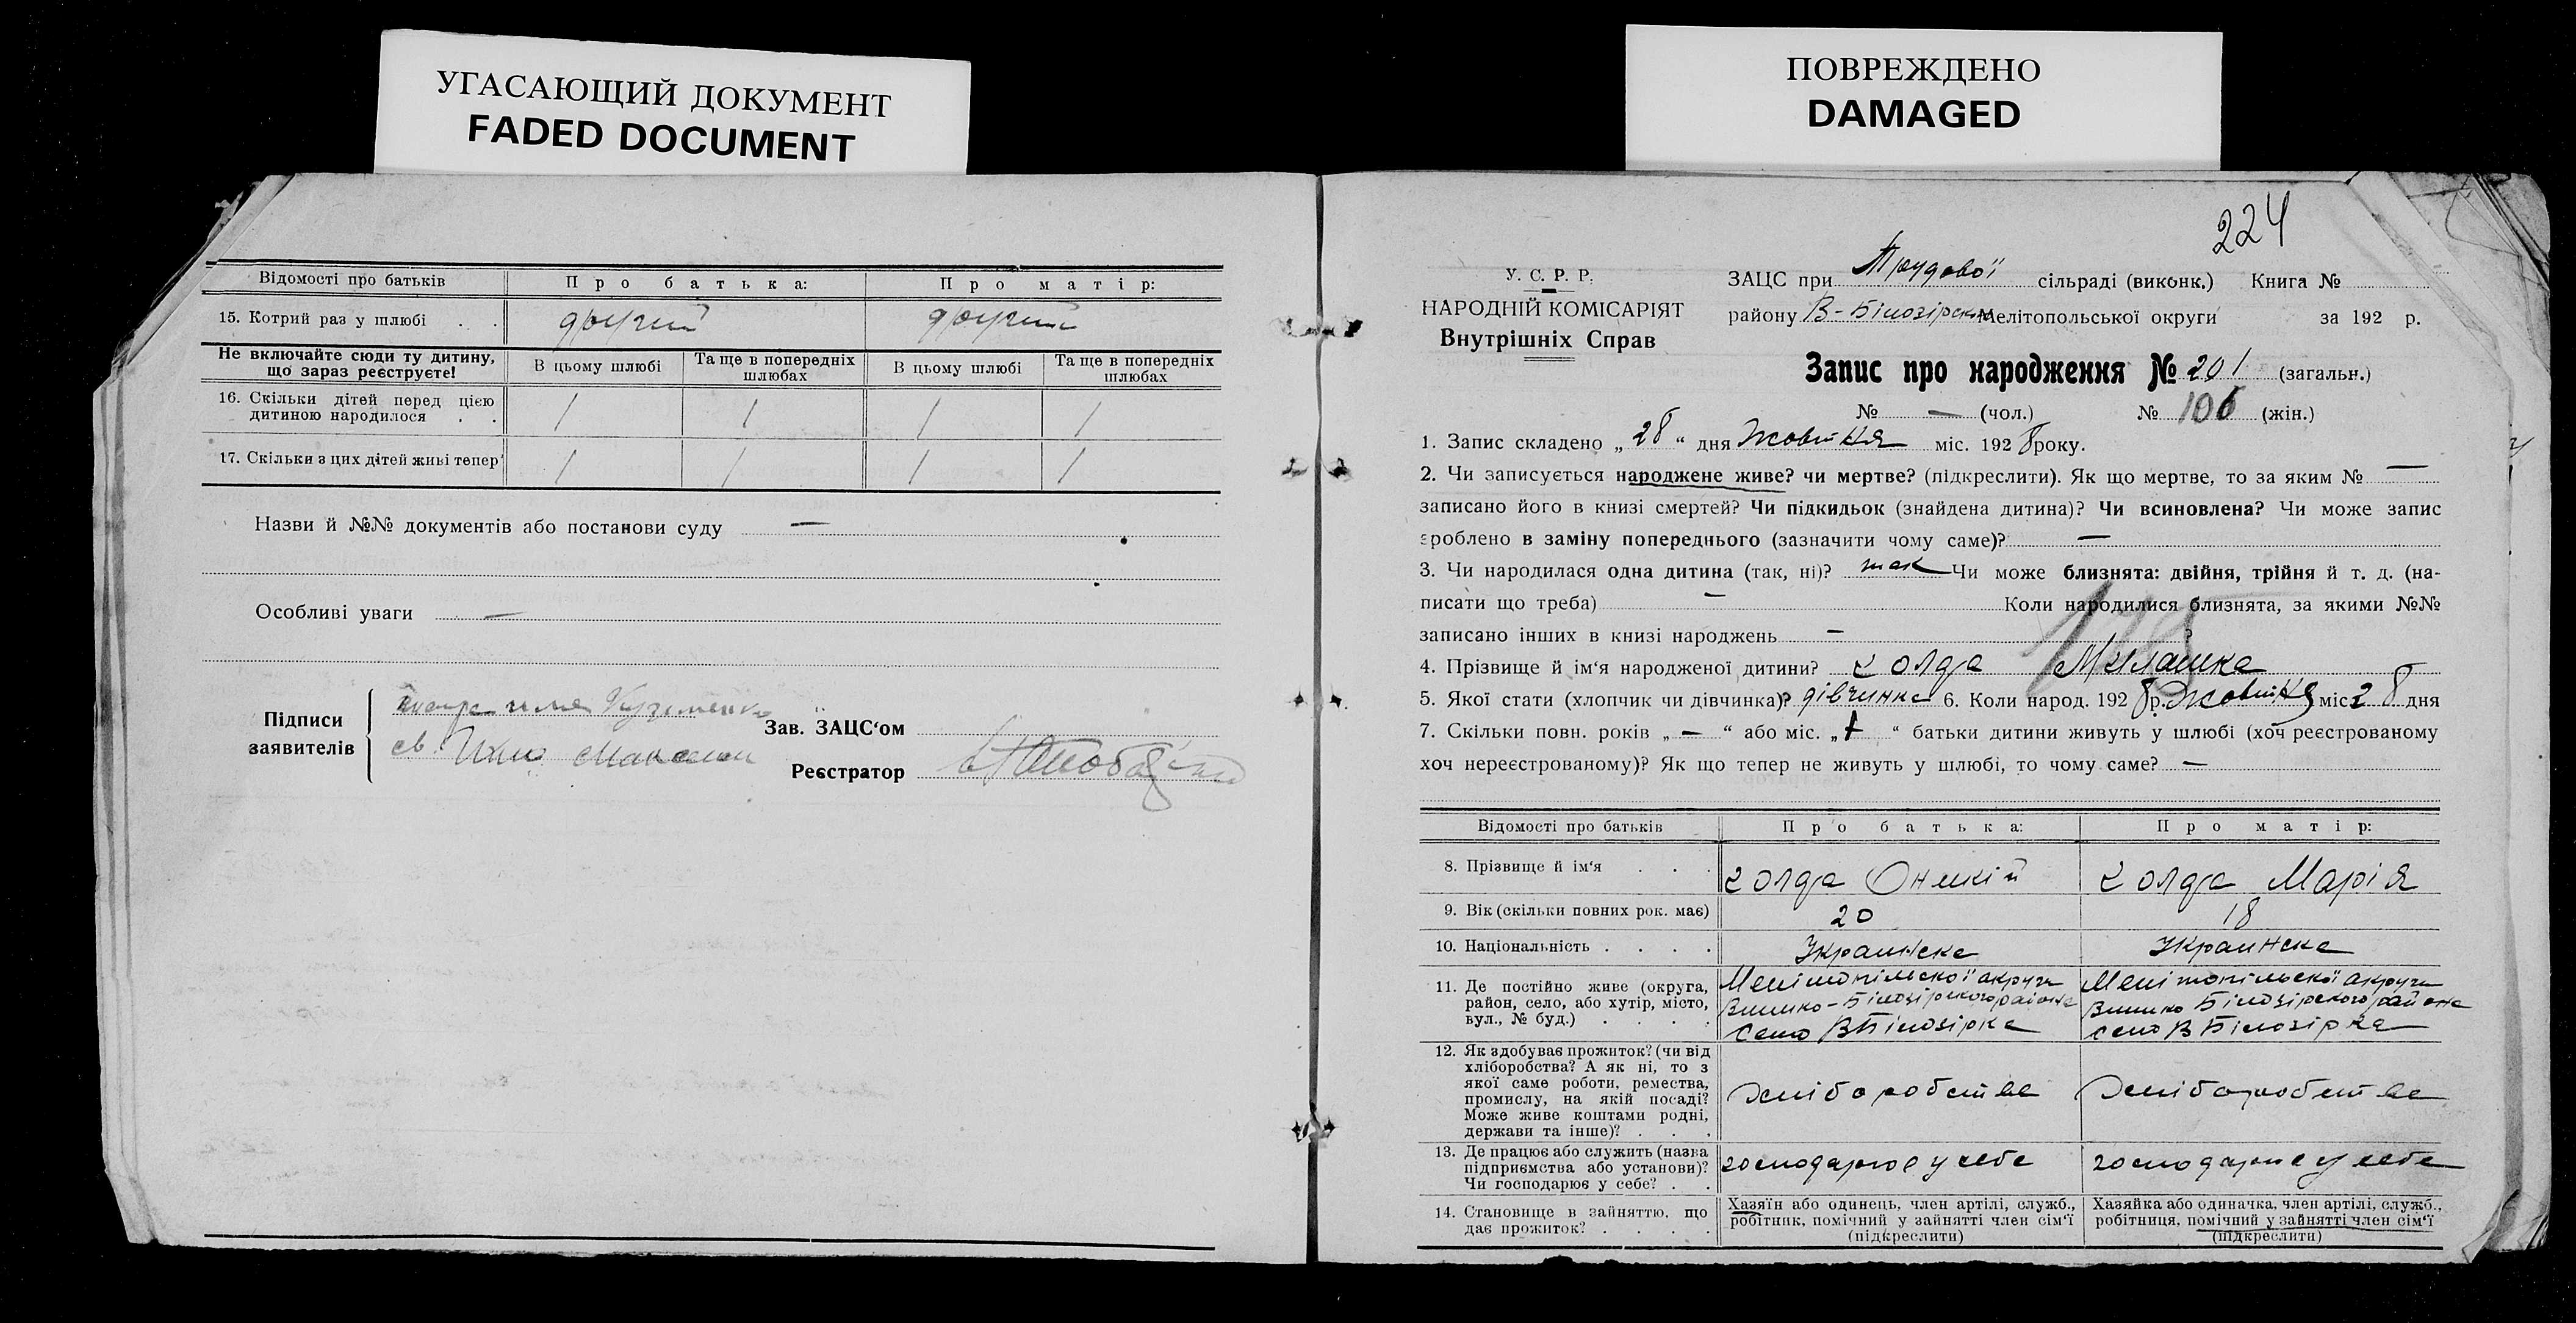 УГАСАЮЩИЙ ДОКУМЕНТ
FADED DOCUMENT
Відомості про батьків Про батька: Про матір:
15. Котрий раз у шлюбі . . другий другий
Не включайте сюди ту дитину,
що зараз реєструєте!
В цьому шлюбі Та ще в попередніх шлюбах В цьому шлюбі Та ще в попередніх шлюбах
16. Скільки дітей перед цією
дитиною народилося . . / / / /
17. Скільки з цих дітей живі тепер / / / /
Назви й №№ документів або постанови суду —
Особливі уваги —
Підписи
заявителів
Кузьменко
св.
Зав. ЗАЦС‘ом
Реєстратор
ПОВРЕЖДЕНО
DAMAGED
224
У. С. Р. Р.
НАРОДНІЙ КОМІСАРІЯТ
Внутрішніх Справ
ЗАЦС при Трудової сільраді (виконк.) Книга №
району В-Білозірськ Мелітопольської округи за 192 р.
Запис про народження № 201 (загальн.)
№ — (чол.) № 106 (жін.)
1. Запис складено „ 28 “ дня Жовтня міс. 192 8 року.
2. Чи записується народжене живе? чи мертве? (підкреслити). Як що мертве, то за яким № —
записано його в книзі смертей? Чи підкидьок (знайдена дитина)? Чи всиновлена? Чи може запис
зроблено в заміну попереднього (зазначити чому саме)? —
3. Чи народилася одна дитина (так, ні)? так Чи може близнята: двійня, трійня й т. д. (на-
писати що треба) — Коли народилися близнята, за якими №№
записано інших в книзі народжень — ?
4. Прізвище й ім‘я народженої дитини? Холда Милашка
5. Якої стати (хлопчик чи дівчинка)? дівчинка 6. Коли народ. 192 8 р. Жовтня міс 28 дня
7. Скільки повн. років „ — “ або міс. „ “ батьки дитини живуть у шлюбі (хоч реєстрованому
хоч нереєстрованому)? Як що тепер не живуть у шлюбі, то чому саме? —
Відомості про батьків Про батька: Про матір:
8. Прізвище й ім‘я . . . Холда Оникій Холда Марія
9. Вік (скільки повних рок. має) 20 18
10. Національність . . . . Украинска Украинска
11. Де постійно живе (округа,
район, село, або хутір, місто,
вул., № буд.) . . . .
Мелітопільскої округи
Велико-Білозірского района
село В Білозірка
Мелітопільскої округи
Велико Білозірского района
село В Білозірка
12. Як здобуває прожиток? (чи від
хліборобства? А як ні, то з
якої саме роботи, ремества,
промислу, на якій посаді?
Може живе коштами родні,
держави та інше)? . . .
хліборобства
хліборобства
13. Де працює або служить (назва
підприємства або установи)?
Чи господарює у себе? . .
господарює у себе
господарює у себе
14. Становище в зайняттю, що
дає прожиток? . . . .
Хазяїн або одинець, член артілі, служб.,
робітник, помічний у зайнятті член сім‘ї
(підкреслити)
Хазяйка або одиначка, член артілі, служб.,
робітниця, помічний у зайнятті член сім‘ї
(підкреслити)